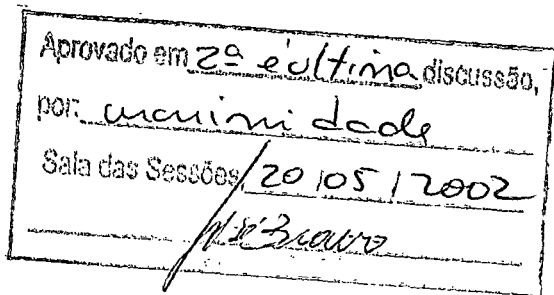 Aprovado em 2ª e última discussão,
por: unanimidade
Sala das Sessões, 20/05/2002